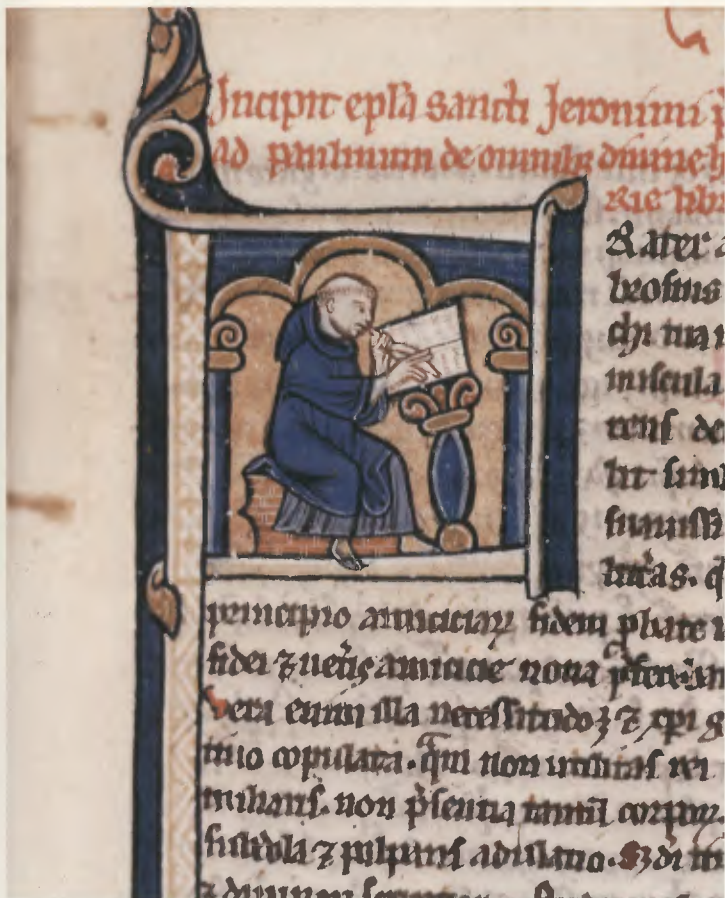 Incipit epła sancti Jeronimi p
ad paulinum de omnibꝫ diuine h
rie libr
Rater a
brosius
chi tua
nuscula
rens de
lit simł
suauiss
littas. q
principio amiciciaꝝ fidem ꝓbate
fidei ⁊ ueteris amicicie noua
Vera enim illa necessitudo ꝫ ⁊ xpi g
tino copulata. qm̄ non utilitas rei
miliaris. non p̄sentia tantū corpoꝝ.
subdola ⁊ palpans adulatio. sꝫ di tī
⁊ diuinaꝝ